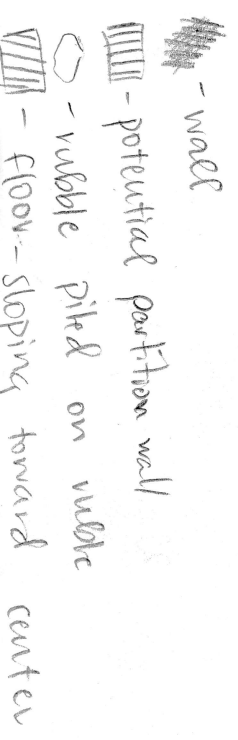 - wall
- potential partition wall
- rubble piled on rubble
- floor - sloping toward center